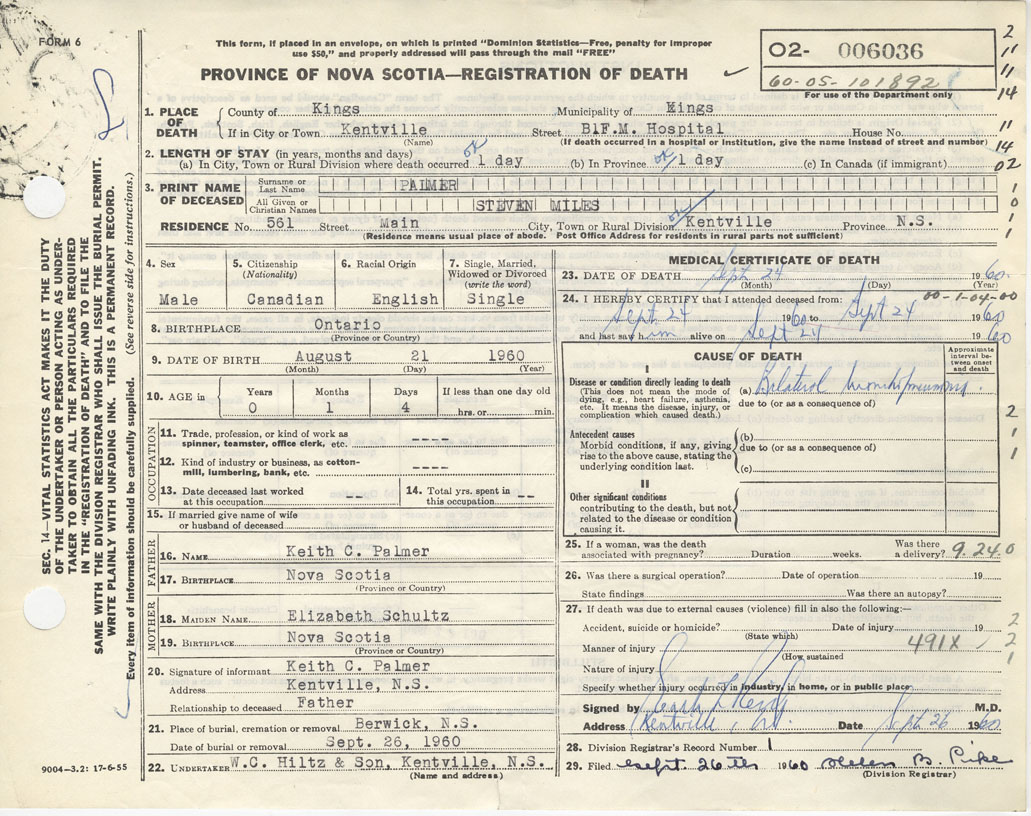 FORM 6
This form, if placed in an envelope, on which is printed "Dominion Statistics—Free, penalty for improper
use $50," and properly addressed will pass through the mail "FREE"
PROVINCE OF NOVA SCOTIA—REGISTRATION OF DEATH
02- 006036
60-05-101892
For use of the Department only
2
11
11
14
11
14
02
1
0
1
1
SEC. 14—VITAL STATISTICS ACT MAKES IT THE DUTY
OF THE UNDERTAKER OR PERSON ACTING AS UNDER-
TAKER TO OBTAIN ALL THE PARTICULARS REQUIRED
IN THE "REGISTRATION OF DEATH" AND TO FILE THE
SAME WITH THE DIVISION REGISTRAR WHO SHALL ISSUE THE BURIAL PERMIT.
WRITE PLAINLY WITH UNFADING INK. THIS IS A PERMANENT RECORD.
Every item of information should be carefully supplied. (See reverse side for instructions.)
1. PLACE OF DEATH
County of Kings Municipality of Kings
If in City or Town Kentville Street B.F.M. Hospital House No.
(Name) (If death occurred in a hospital or institution, give the name instead of street and number)
2. LENGTH OF STAY (in years, months and days)
(a) In City, Town or Rural Division where death occurred 1 day (b) In Province 1 day (c) In Canada (if immigrant)
3. PRINT NAME OF DECEASED
Surname or Last Name PALMER
All Given or Christian Names STEVEN MILES
RESIDENCE No. 561 Street Main City, Town or Rural Division Kentville Province N.S.
(Residence means usual place of abode. Post Office Address for residents in rural parts not sufficient)
4. Sex
Male
5. Citizenship
(Nationality)
Canadian
6. Racial Origin
English
7. Single, Married,
Widowed or Divorced
(write the word)
Single
8. BIRTHPLACE Ontario
(Province or Country)
9. DATE OF BIRTH August 21 1960
(Month) (Day) (Year)
10. AGE in
Years Months Days If less than one day old
0 1 4 hrs. or min.
OCCUPATION
11. Trade, profession, or kind of work as
spinner, teamster, office clerk, etc. ----
12. Kind of industry or business, as cotton-
mill, lumbering, bank, etc. ----
13. Date deceased last worked
at this occupation
14. Total yrs. spent in
this occupation --
15. If married give name of wife
or husband of deceased
FATHER
16. NAME Keith C. Palmer
17. BIRTHPLACE Nova Scotia
(Province or Country)
MOTHER
18. MAIDEN NAME Elizabeth Schultz
19. BIRTHPLACE Nova Scotia
(Province or Country)
20. Signature of informant Keith C. Palmer
Address Kentville, N.S.
Relationship to deceased Father
21. Place of burial, cremation or removal Berwick, N.S.
Date of burial or removal Sept. 26, 1960
22. UNDERTAKER W.C. Hiltz & Son, Kentville, N.S.
(Name and address)
9004-3.2: 17-6-55
MEDICAL CERTIFICATE OF DEATH
23. DATE OF DEATH Sept 24 1960
(Month) (Day) (Year)
24. I HEREBY CERTIFY that I attended deceased from: 00-1-04-00
Sept 24 1960 to Sept 24 1960
and last saw him alive on Sept 24 1960
CAUSE OF DEATH
Approximate
interval be-
tween onset
and death
I
Disease or condition directly leading to death
(This does not mean the mode of
dying, e.g., heart failure, asthenia,
etc. It means the disease, injury, or
complication which caused death.)
(a) Bilateral bronchopneumonia
due to (or as a consequence of)
Antecedent causes
Morbid conditions, if any, giving
rise to the above cause, stating the
underlying condition last.
(b)
due to (or as a consequence of)
(c)
II
Other significant conditions
contributing to the death, but not
related to the disease or condition
causing it.
2
1
1
25. If a woman, was the death
associated with pregnancy? Duration weeks. Was there
a delivery? 9.24.0
26. Was there a surgical operation? Date of operation 19
State findings Was there an autopsy?
27. If death was due to external causes (violence) fill in also the following:—
Accident, suicide or homicide? Date of injury 19
(State which)
Manner of injury 491X
(How sustained
Nature of injury
Specify whether injury occurred in industry, in home, or in public place
2
2
1
Signed by M.D.
Address Kentville, Date Sept 26 1960
28. Division Registrar's Record Number 1
29. Filed Sept. 26th 1960 Helen B. Pike
(Division Registrar)